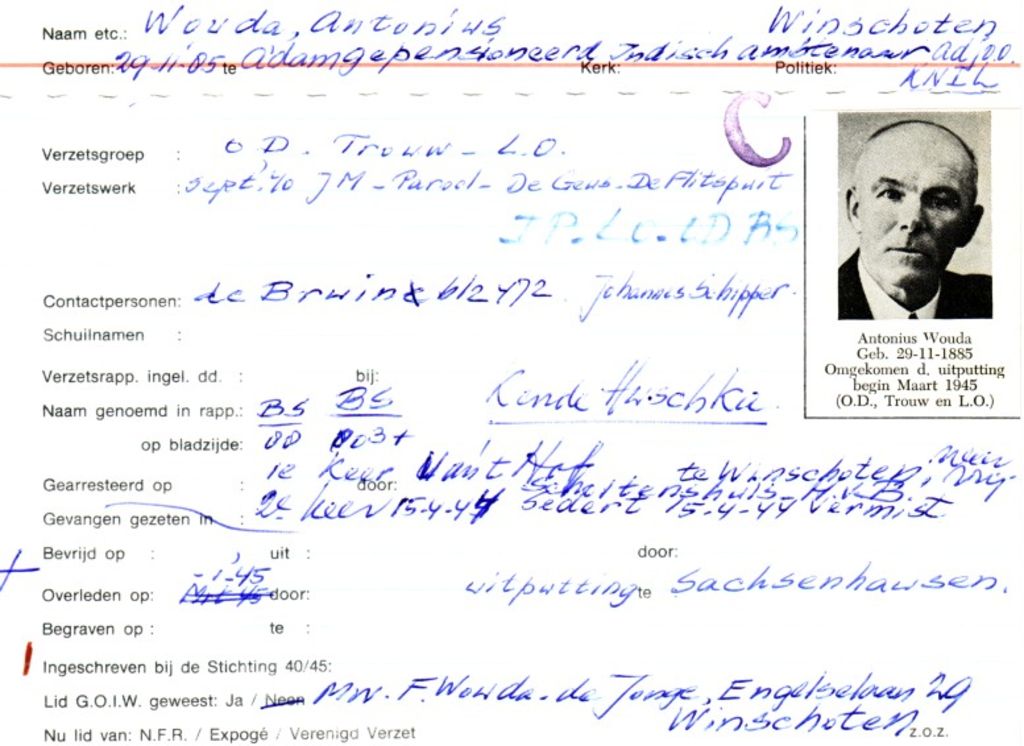 Naam etc.: Wouda, Antonius Winschoten
Geboren: 29-11-85 te Adam gepensioneerd Indisch ambtenaar adj.o.o.
Kerk: Politiek: KNIL
C
Verzetsgroep : O.D. Trouw - L.O.
Verzetswerk : Sept. '40 JM - Parool - De Geus - De Flitspuit
J P. - L.O. - O.D BS
Contactpersonen: de Bruin 6/2472. Johannes Schipper.
Schuilnamen :
Verzetsrapp. ingel. dd. : bij:
Naam genoemd in rapp.: BS BS Kende Huschka.
op bladzijde: 00 003+
Gearresteerd op : 1e keer door: van't Hof te Winschoten, weer vrij.
Scholtenshuis - H.v.B.
Gevangen gezeten in : 2e keer 15-4-44 Sedert 15-4-44 Vermist
Bevrijd op : , uit : door:
Overleden op: -1-45 door: uitputting te Sachsenhausen.
Begraven op : te :
Ingeschreven bij de Stichting 40/45:
Lid G.O.I.W. geweest: Ja / Neen Mw. F. Wouda - de Jonge, Engelselaan 29
Winschoten
Nu lid van: N.F.R. / Expogé / Verenigd Verzet z.o.z.
Antonius Wouda
Geb. 29-11-1885
Omgekomen d. uitputting
begin Maart 1945
(O.D., Trouw en L.O.)